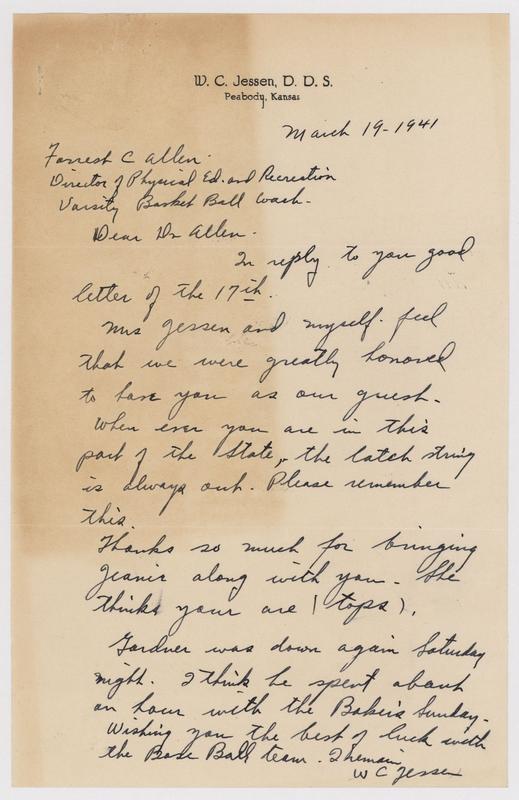 W. C. Jessen, D. D. S.
Peabody, Kansas
March 19-1941
Forrest C Allen.
Director of Physical Ed. and Recreation
Varsity Basket Ball Coach-
Dear Dr Allen.
In reply to you good
letter of the 17th.
Mrs Jessen and myself. feel
that we were greatly honored
to have you as our guest.
When ever you are in this
part of the State, the latch string
is always out. Please remember
this.
Thanks so much for bringing
Jeanie along with you- She
thinks your are (tops).
Gardner was down again Saturday
night. I think he spent about
an hour with the Baker's Sunday-
Wishing you the best of luck with
the Base Ball team. I remain
W C Jessen